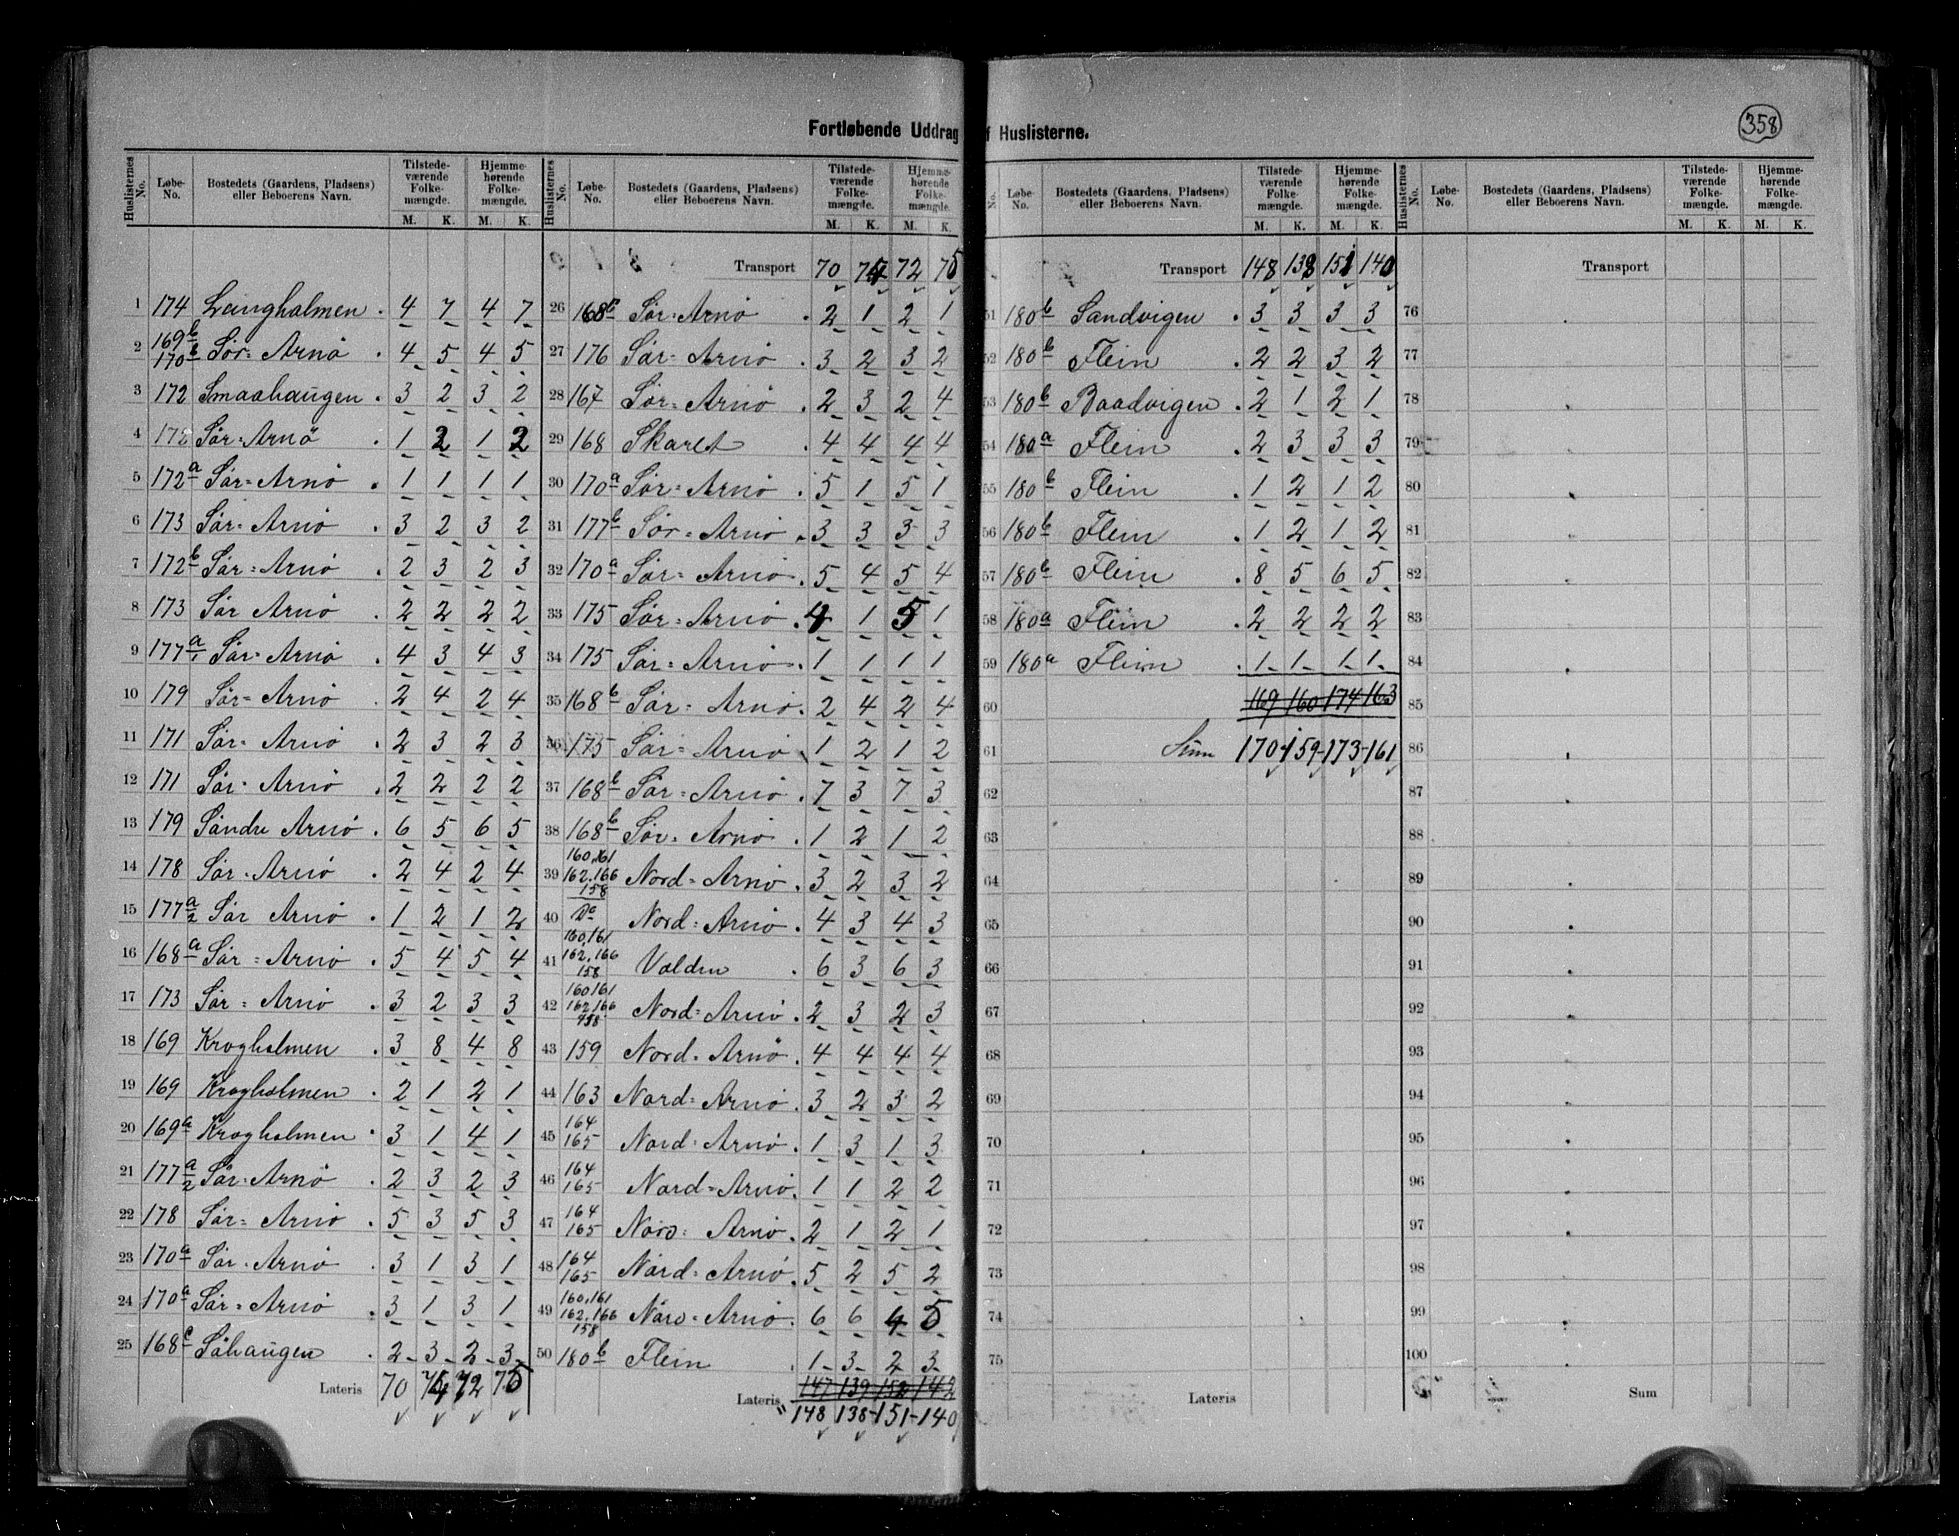 358
Fortløbende Uddrag
f Huslisterne.
Huslisternes No. | Løbe-No. | Bostedets (Gaardens, Pladsens) eller Beboerens Navn. | Tilstedeværende Folkemængde. M. K. | Hjemmehørende Folkemængde. M. K.
1 174 Langholmen 4 7 4 7
2 169b 170b Sør-Arnø 4 5 4 5
3 172 Smaahaugen 3 2 3 2
4 172 Sør-Arnø 1 2 1 2
5 172a Sør-Arnø 1 1 1 1
6 173 Sør-Arnø 3 2 3 2
7 172b Sør-Arnø 2 3 2 3
8 173 Sør Arnø 2 2 2 2
9 177a/1 Sør-Arnø 4 3 4 3
10 179 Sør-Arnø 2 4 2 4
11 171 Sør-Arnø 2 3 2 3
12 171 Sør-Arnø 2 2 2 2
13 179 Søndre Arnø 6 5 6 5
14 178 Sør-Arnø 2 4 2 4
15 177a/2 Sør Arnø 1 2 1 2
16 168a Sør-Arnø 5 4 5 4
17 173 Sør-Arnø 3 2 3 3
18 169 Krogholmen 3 8 4 8
19 169 Krogholmen 2 1 2 1
20 169a Krogholmen 3 1 4 1
21 177a/2 Sør-Arnø 2 3 2 3
22 178 Sør-Arnø 5 3 5 3
23 170a Sør-Arnø 3 1 3 1
24 170a Sør-Arnø 3 1 3 1
25 168c Søhaugen 2 3 2 3
Lateris 70 74 72 75
Huslisternes No. | Løbe-No. | Bostedets (Gaardens, Pladsens) eller Beboerens Navn. | Tilstedeværende Folkemængde. M. K. | Hjemmehørende Folkemængde. M. K.
Transport 70 74 72 75
26 168c Sør-Arnø 2 1 2 1
27 176 Sør-Arnø 3 2 3 2
28 167 Sør-Arnø 2 3 2 4
29 168 Skaret 4 4 4 4
30 170a Sør-Arnø 5 1 5 1
31 177b Sør-Arnø 3 3 3 3
32 170a Sør-Arnø 5 4 5 4
33 175 Sør-Arnø 4 1 5 1
34 175 Sør-Arnø 1 1 1 1
35 168b Sør-Arnø 2 4 2 4
36 175 Sør-Arnø 1 2 1 2
37 168b Sør-Arnø 7 3 7 3
38 168b Sør-Arnø 1 2 1 2
39 160,161 162,166 158 Nord-Arnø 3 2 3 2
40 Do Nord-Arnø 4 3 4 3
41 160,161 162,166 158 Valden 6 3 6 3
42 160 161 162,166 158 Nord-Arnø 2 3 2 3
43 159 Nord-Arnø 4 4 4 4
44 163 Nord-Arnø 3 2 3 2
45 164 165 Nord-Arnø 1 3 1 3
46 164 165 Nord-Arnø 1 1 2 2
47 164 165 Nord-Arnø 2 1 2 1
48 164 165 Nord-Arnø 5 2 5 2
49 160,161 162,166 158 Nord-Arnø 6 6 4 5
50 180b Flein 1 3 2 3
147 139 152 142
Lateris 148 138 151 140
No. | Løbe-No. | Bostedets (Gaardens, Pladsens) eller Beboerens Navn. | Tilstedeværende Folkemængde. M. K. | Hjemmehørende Folkemængde. M. K.
Transport 148 138 151 140
51 180b Sandvigen 3 3 3 3
52 180b Flein 2 2 3 2
53 180b Baadvigen 2 1 2 1
54 180a Flein 2 3 3 3
55 180b Flein 1 2 1 2
56 180b Flein 1 2 1 2
57 180b Flein 8 5 6 5
58 180a Flein 2 2 2 2
59 180a Flein 1 1 1 1
60 169 160 174 163
61 Sum 170 159 173 161
62
63
64
65
66
67
68
69
70
71
72
73
74
75
Lateris
Huslisternes No. | Løbe-No. | Bostedets (Gaardens, Pladsens) eller Beboerens Navn. | Tilstedeværende Folkemængde. M. K. | Hjemmehørende Folkemængde. M. K.
Transport
76
77
78
79
80
81
82
83
84
85
86
87
88
89
90
91
92
93
94
95
96
97
98
99
100
Sum